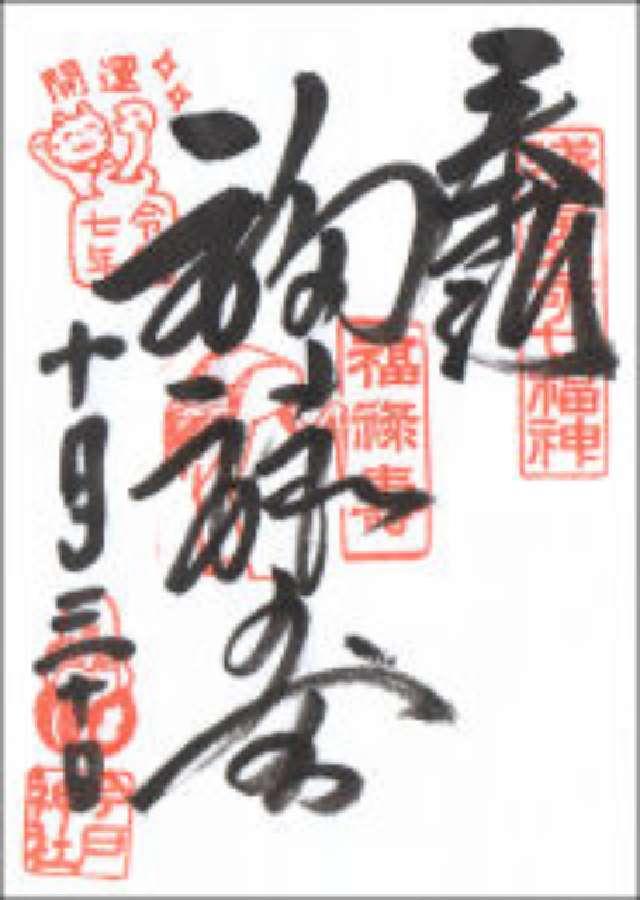 奉拝
浅草名所七福神
福禄寿
福禄壽
開運
令和七年
十月三十日
今戸神社